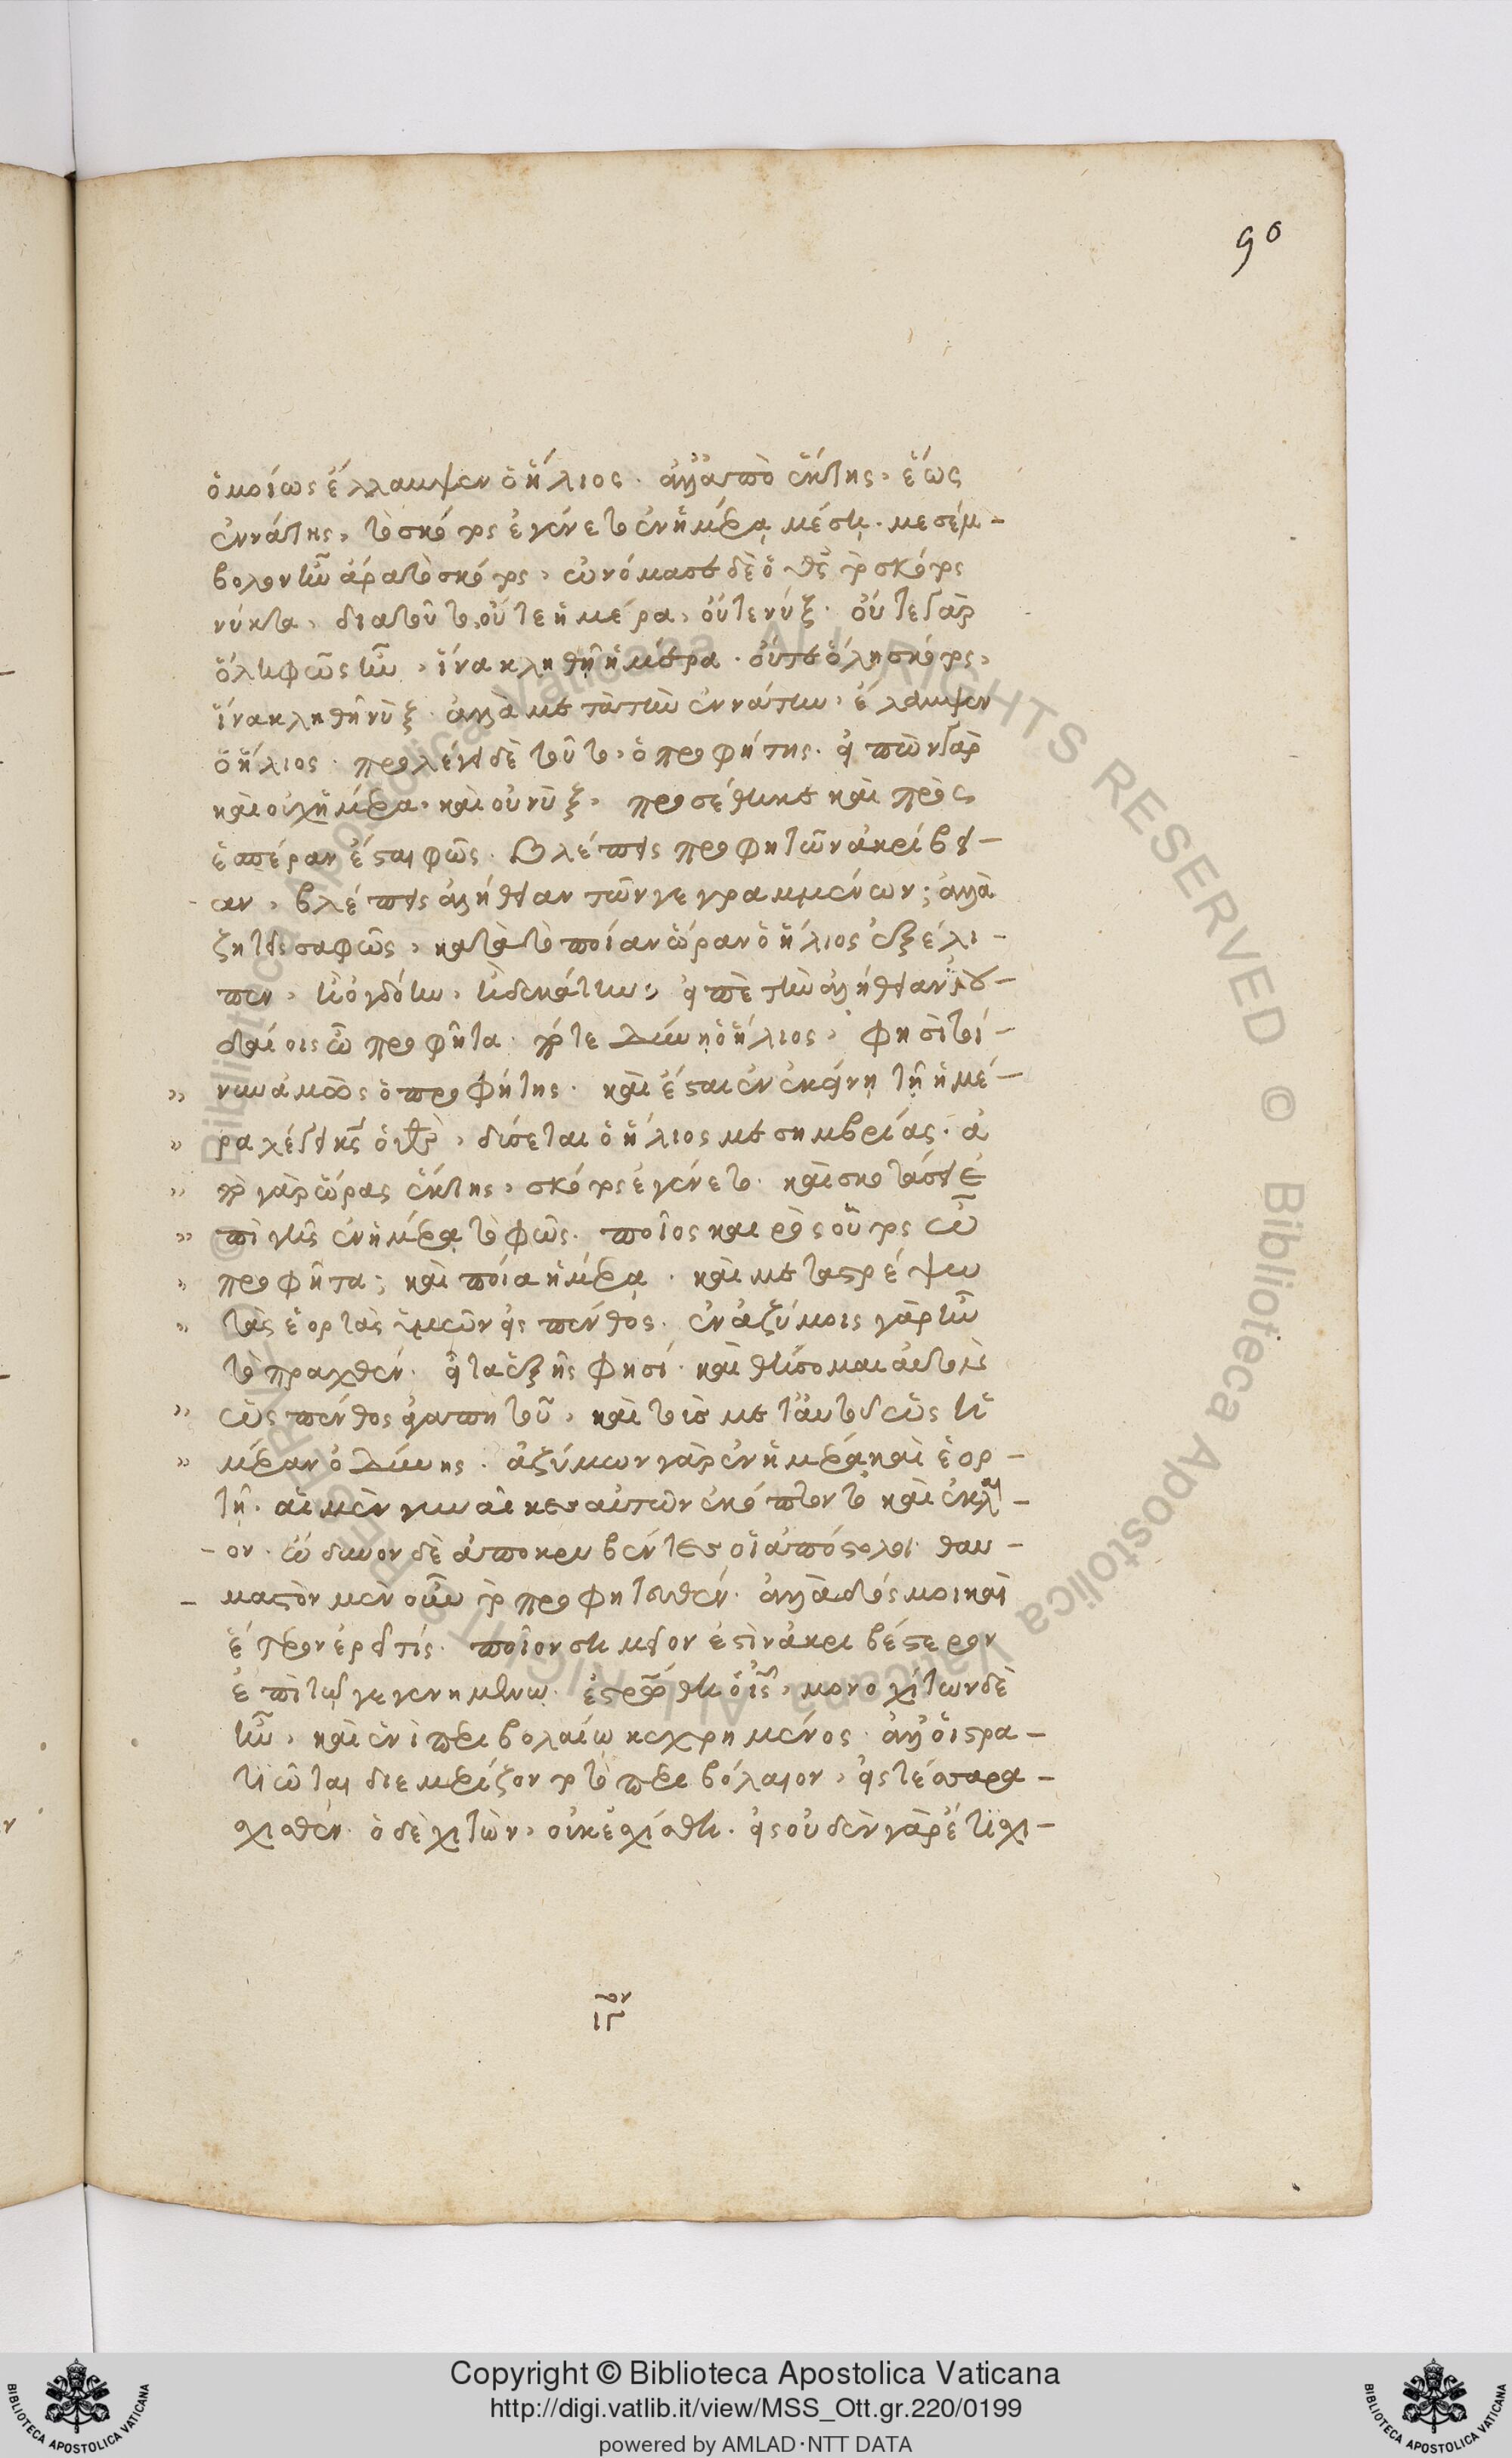 90
ὁμοίως ἔλλαμψεν ὁ ἥλιος. ἀλλ' ἀπὸ ἕκτης, ἕως
ἐννάτης, τὸ σκότος ἐγένετο ἐν ἡμέρᾳ μέσῃ. μεσέμ-
βολον ἦν ἄρα τὸ σκότος, ὠνόμασε δὲ ὁ θς τὸ σκότος
νύκτα, διατοῦτο, οὔτε ἡμέρα, οὔτε νύξ. οὔτε γὰρ
ὅλη φῶς ἦν, ἵνα κληθῆ ἡμέρα. οὔτε ὅλη σκότος,
ἵνα κληθῆ νὺξ. ἀλλὰ μετὰ τὴν ἐννάτην, ἔλαμψεν
ὁ ἥλιος. προλέγει δὲ τοῦτο, ὁ προφήτης. εἰπὼν γὰρ
καὶ οὐχ ἡμέρα. καὶ οὐ νὺξ, προσέθηκε καὶ πρὸς
ἑσπέραν ἔσται φῶς. βλέπεις προφητῶν ἀκρίβει-
αν, βλέπεις ἀλήθειαν τῶν γεγραμμένων; ἀλλὰ
ζητεῖς σαφῶς, κατὰ τὸ ποίαν ὥραν ὁ ἥλιος ἐξέλι-
πεν, ἢ ὀγδόην, ἢ δεκάτην; εἰπὲ τὴν ἀλήθειαν ἰου-
δαίοις ὦ προφῆτα. πότε δύνῃ ὁ ἥλιος, φησὶ τοί-
» νυν ἀμὼς ὁ προφήτης. καὶ ἔσται ἐν ἐκείνῃ τῇ ἡμέ-
» ρα λέγει κς ὁ θς, δύσεται ὁ ἥλιος μεσημβρίας. ἀ
» πὸ γὰρ ὥρας ἕκτης, σκότος ἐγένετο. καὶ σκοτάσει ἐ
» πὶ γῆς ἐν ἡμέρᾳ τὸ φῶς. ποῖος καιρὸς οὗτος ὦ
» προφῆτα; καὶ ποία ἡμέρα. καὶ μεταστρέψω
» τὰς ἑορτὰς ὑμῶν εἰς πένθος. ἐν ἀζύμοις γὰρ ἦν
τὸ πραχθέν. εἶτα ἑξῆς φησί. καὶ θήσομαι αὐτὸν
» ὡς πένθος ἀγαπητοῦ, καὶ τοὺς μετ' αὐτοῦ ὡς ἡ
» μέραν ὀδύνης. ἀζύμων γὰρ ἐν ἡμέρᾳ καὶ ἑορ-
τῇ. αἱ μὲν γυναῖκες αὐτῶν ἐκόπτοντο καὶ ἔκλαι-
-ον. ὠδύνον δὲ ἀποκρυβέντες οἱ ἀπόστολοι. θαυ-
- μαστὸν μὲν οὖν τὸ προφητευθέν. ἀλλὰ δός μοι καὶ
ἕτερον ἐρεῖ τίς. ποῖον σημεῖον ἐστὶν ἀκριβέστερον
ἐπὶ τῷ γεγενημένῳ. ἐστρώθη ὁ ις, μονοχίτων δὲ
ἦν, καὶ ἑνὶ περιβολαίῳ κεχρημένος. ἀλλ' οἱ στρα-
τιῶται διεμέριζον τὸ περιβόλαιον, εἰς τέσσαρα
σχισθέν. ὁ δὲ χιτὼν, οὐκ ἐσχίσθη. εἰς οὐδὲν γὰρ ἔτι σχι-
ιγον